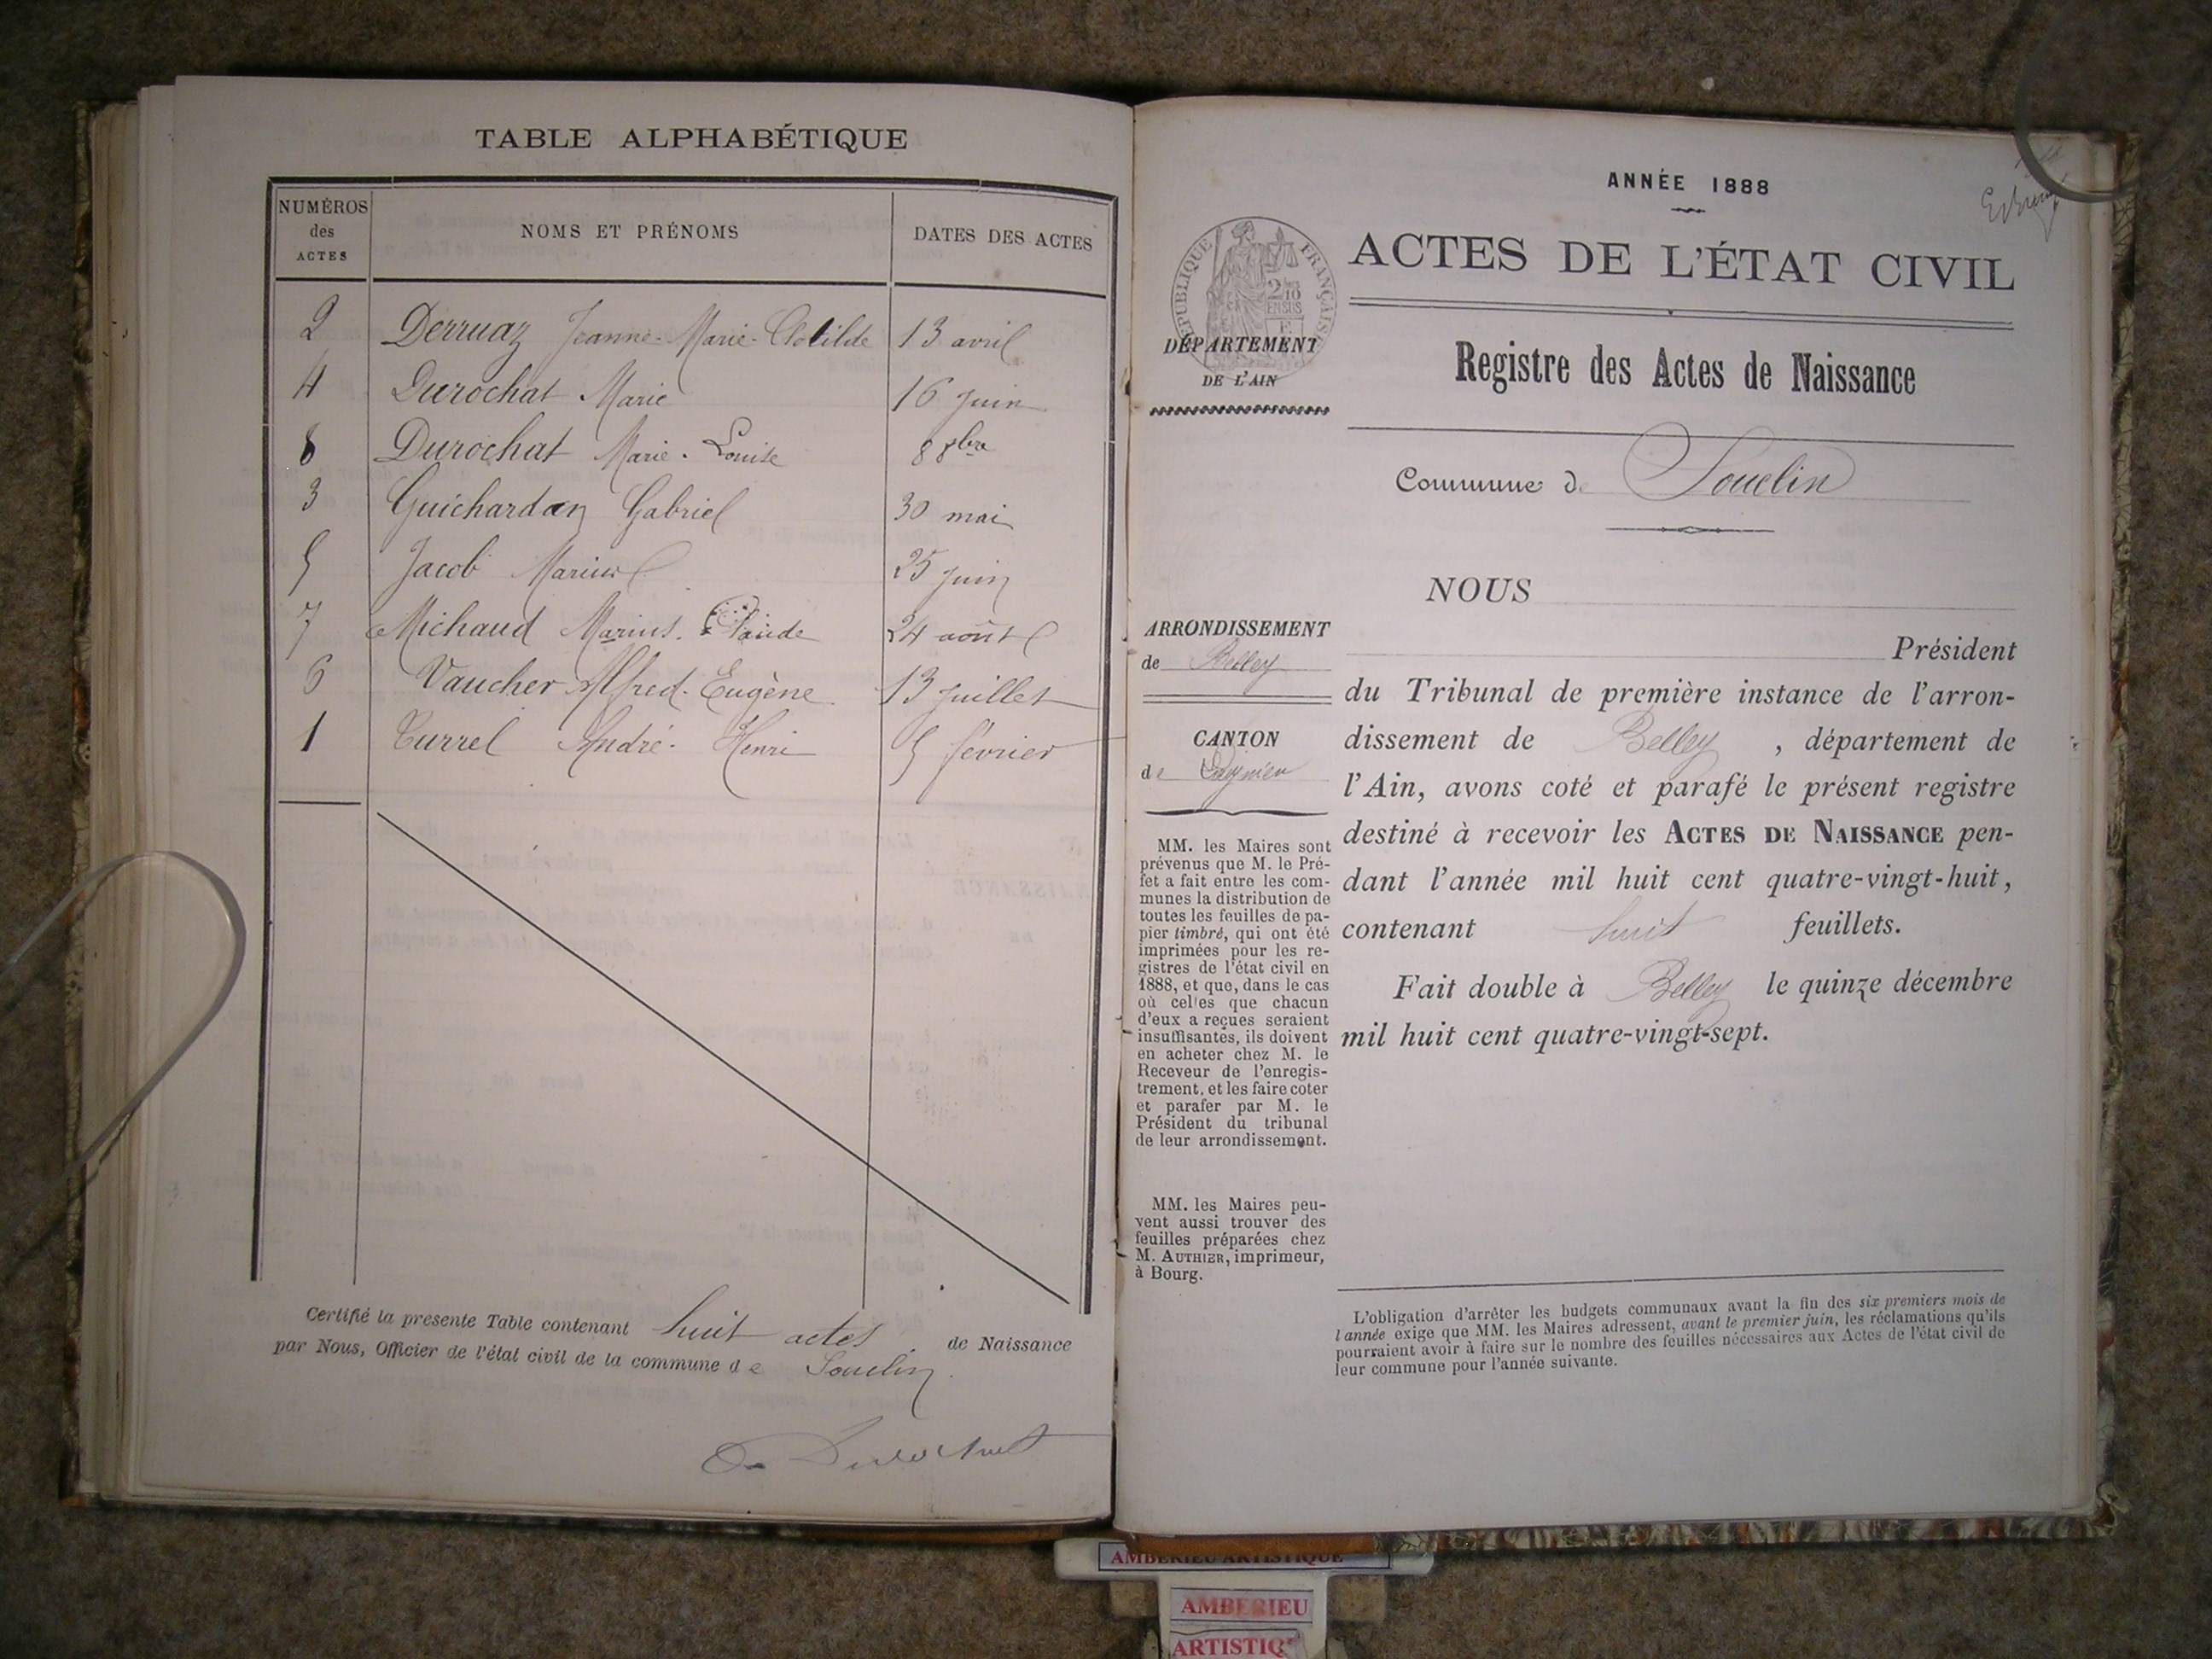 TABLE ALPHABÉTIQUE
NUMÉROS des ACTES
NOMS ET PRÉNOMS
DATES DES ACTES
2 Derruaz Jeanne-Marie-Clotilde 13 avril
4 Durochat Marie 16 juin
8 Durochat Marie-Louise 8 8bre
3 Guichardan Gabriel 30 mai
5 Jacob Marius 25 juin
7 Michaud Marius-Claude 24 août
6 Vaucher Alfred-Eugène 13 juillet
1 Turrel André-Henri 5 février
Certifié la présente Table contenant huit actes de Naissance
par Nous, Officier de l'état civil de la commune de Souclin
Durochat
ANNÉE 1888
ACTES DE L'ÉTAT CIVIL
RÉPUBLIQUE FRANÇAISE
DÉPARTEMENT
DE L'AIN
Registre des Actes de Naissance
Commune de Souclin
NOUS
ARRONDISSEMENT
de Belley
CANTON
de Lagnieu
Président
du Tribunal de première instance de l'arron-
dissement de Belley, département de
l'Ain, avons coté et parafé le présent registre
destiné à recevoir les ACTES DE NAISSANCE pen-
dant l'année mil huit cent quatre-vingt-huit,
contenant huit feuillets.
Fait double à Belley le quinze décembre
mil huit cent quatre-vingt-sept.
MM. les Maires sont
prévenus que M. le Pré-
fet a fait entre les com-
munes la distribution de
toutes les feuilles de pa-
pier timbré, qui ont été
imprimées pour les re-
gistres de l'état civil en
1888, et que, dans le cas
où celles que chacun
d'eux a reçues seraient
insuffisantes, ils doivent
en acheter chez M. le
Receveur de l'enregis-
trement, et les faire coter
et parafer par M. le
Président du tribunal
de leur arrondissement.
MM. les Maires peu-
vent aussi trouver des
feuilles préparées chez
M. AUTHIER, imprimeur,
à Bourg.
L'obligation d'arrêter les budgets communaux avant la fin des six premiers mois de
l'année exige que MM. les Maires adressent, avant le premier juin, les réclamations qu'ils
pourraient avoir à faire sur le nombre des feuilles nécessaires aux Actes de l'état civil de
leur commune pour l'année suivante.
AMBERIEU ARTISTIQUE
AMBERIEU
ARTISTIQ